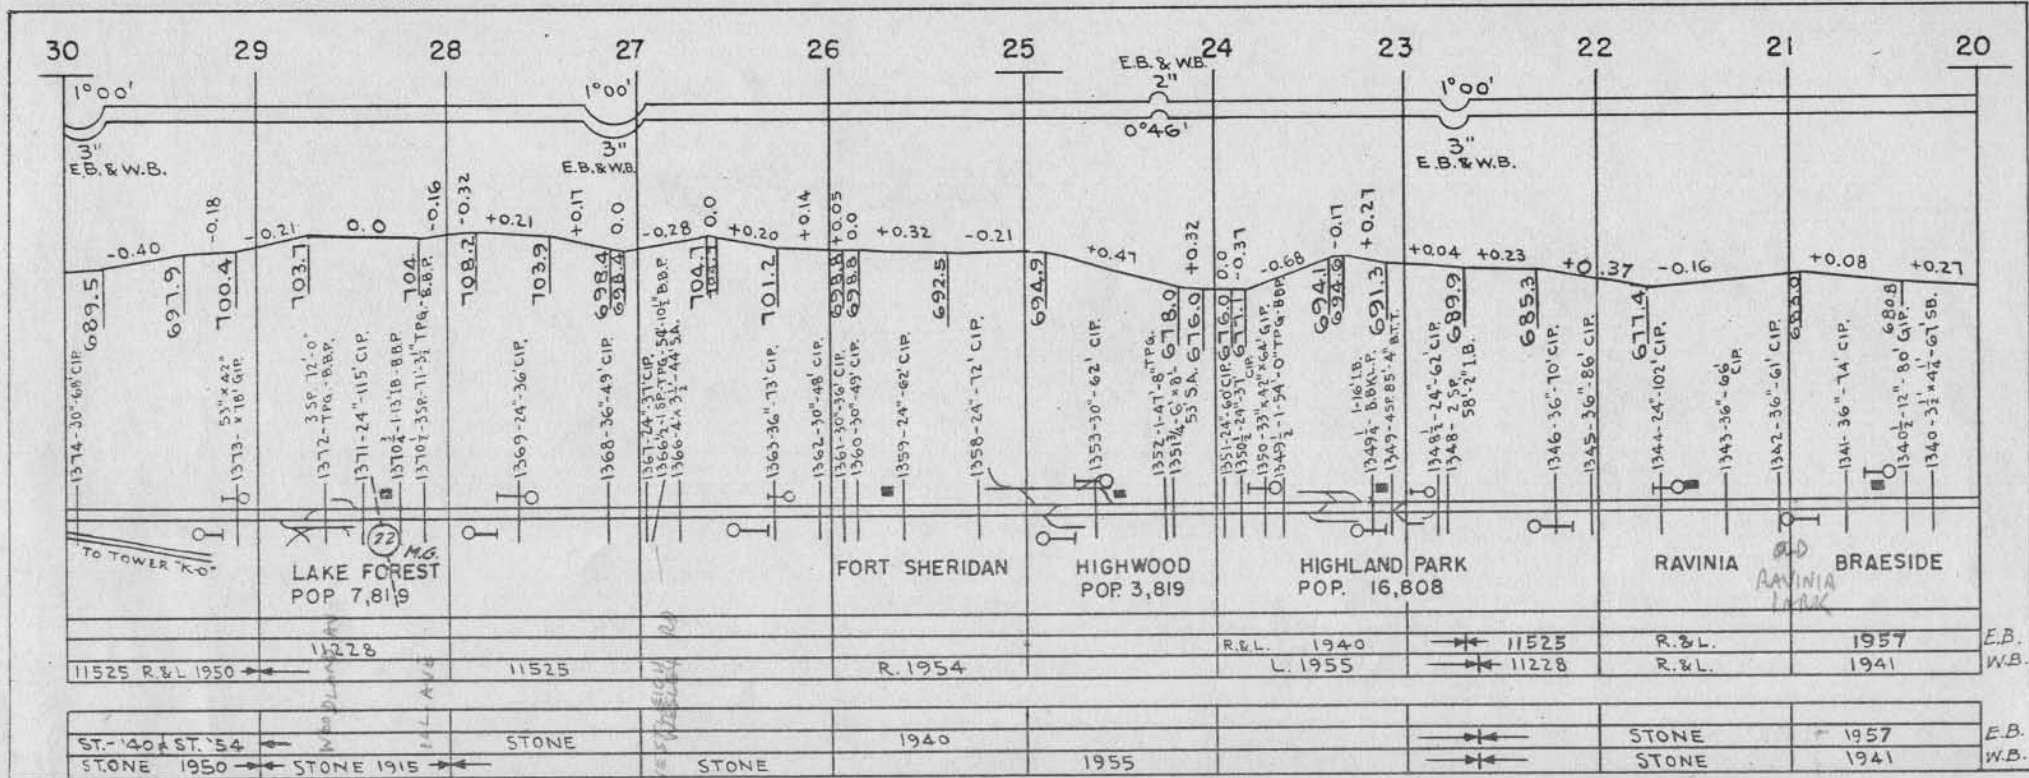 30 29 28 27 26 25 24 23 22 21 20
E.B. & W.B.
1°00' 1°00' 2" 1°00'
0°46'
3" 3" 3"
E.B. & W.B. E.B. & W.B. E.B. & W.B.
-0.40 -0.18 -0.21 0.0 -0.16 -0.32 +0.21 +0.17 0.0 -0.28 0.0 +0.20 +0.14 +0.05 0.0 +0.32 -0.21 +0.47 +0.32 0.0 -0.37 -0.68 -0.17 +0.27 +0.04 +0.23 +0.37 -0.16 +0.08 +0.27
689.5 697.9 700.4 703.7 704 708.2 703.9 698.4 698.4 704.7 704.7 701.2 698.8 698.8 692.5 694.9 678.0 676.0 676.0 677.1 694.1 694.6 691.3 689.9 685.3 677.4 683.0 680.8
1374-30"-68' CIP.
1373- 53"x42" x78' GIP.
1372- 3 SP. 72'-0" TPG.-B.B.P.
1371-24"-115' CIP.
1370¾-1-13' IB-BBP.
1370½-3SP.-71'-3½" TPG. B.B.P.
1369-24"-36' CIP.
1368-36"-49' CIP.
1367-24"-37' CIP.
1366½-1 SP. TPG. 54'-10½" B.B.P.
1366-4'x3½'-44' S.A.
1363-36"-73' CIP.
1362-30"-48' CIP.
1361-30"-36' CIP.
1360-30"-49' CIP.
1359-24"-62' CIP.
1358-24"-72' CIP.
1353-30"-62' CIP.
1352-1-47'-8" TPG.
1351¾-6'x8'-53' S.A.
1351-24"-60' CIP.
1350½-24"-37' CIP.
1350-33"x42"x64' GIP.
1349½-1-54'-0" TPG-BBP.
1349¼ 1-16' I.B. B.BKL.P.
1349-4SP.85'-4" B.T.T.
1348½-24"-62' CIP.
1348- 2 SP. 58'-2" I.B.
1346-36"-70' CIP.
1345-36"-86' CIP.
1344-24"-102' CIP.
1343-36"-66' CIP.
1342-36"-61' CIP.
1341-36"-74' CIP.
1340½-12"-80' GIP.
1340-3½'x4¼'-67' SB.
TO TOWER "K-O"
22 M.G.
LAKE FOREST
POP. 7,819
FORT SHERIDAN
HIGHWOOD
POP. 3,819
HIGHLAND PARK
POP. 16,808
RAVINIA
OLD
RAVINIA
PARK
BRAESIDE
WOODLAND AV
ILL. AVE
WESTLEIGH RD
11228 R.&L. 1940 11525 R.&L. 1957 E.B.
11525 R.&L 1950 11525 R. 1954 L. 1955 11228 R.&L. 1941 W.B.
ST.-'40 & ST. '54 STONE 1940 STONE 1957 E.B.
STONE 1950 STONE 1915 STONE 1955 STONE 1941 W.B.